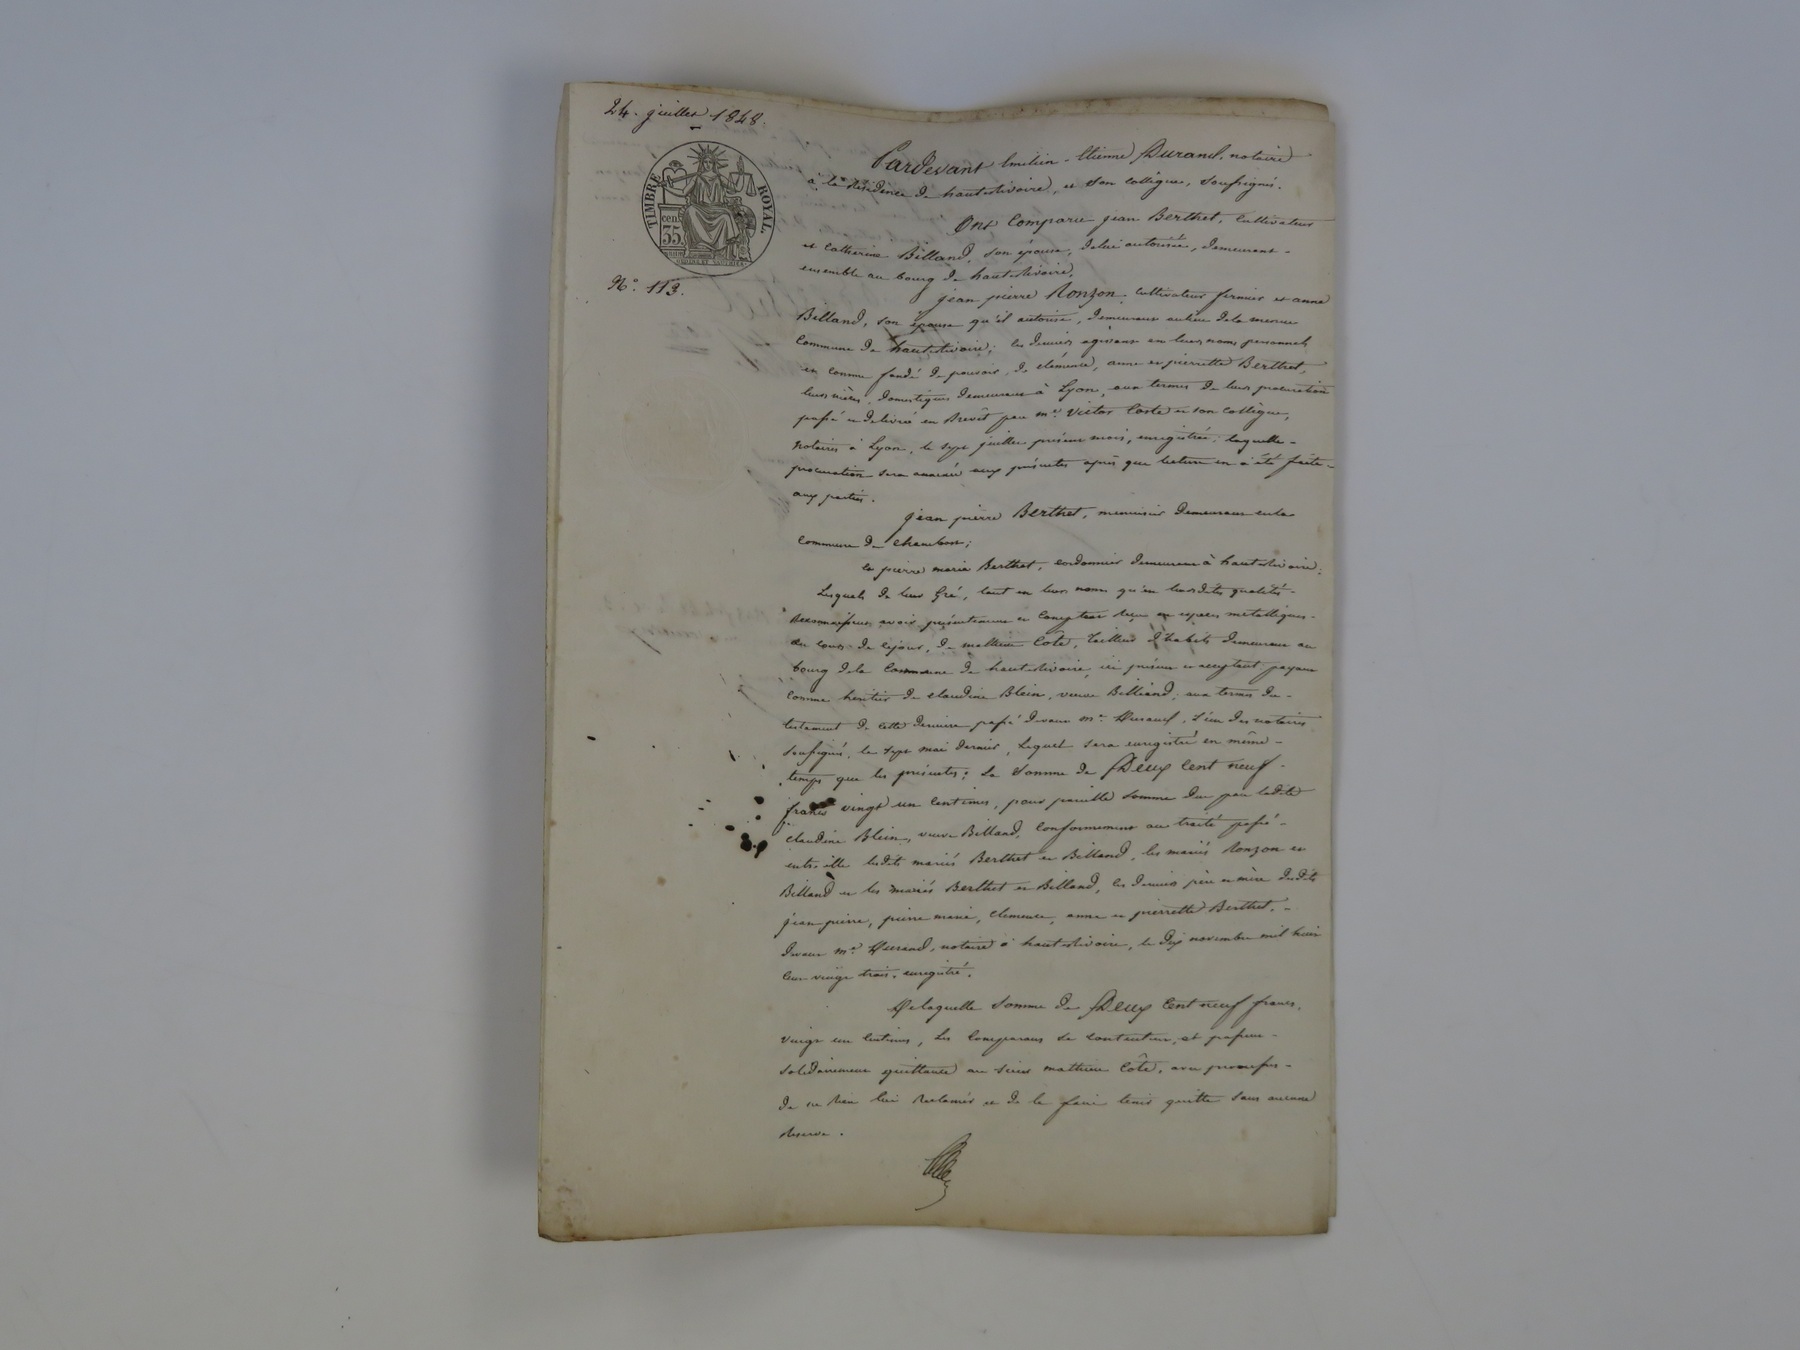 24. juillet 1848.
TIMBRE ROYAL.
cen.
35
N.° 113.
Pardevant Emilien-Etienne Durand, notaire
à la Résidence de hauterivoire, et son collègue, soussignés.
Ont Comparu jean Berthet, Cultivateur
et Catherine Billand, son épouse, delui autorisée, demeurant
ensemble au bourg de hauterivoire,
jean pierre Ronzon, Cultivateur fermier et anne
Billand, son épouse qu'il autorise, demeurant aulieu dela même
Commune de hauterivoire; les derniers agissant en leurs noms personnels
et comme fondé de pouvoir, de clémence, anne et pierrette Berthet,
leurs nièces, domestiques demeurant à Lyon, aux termes de leur procuration
passé et delivré en Brevêt par m.e Victor Coste et son collègue,
notaires à Lyon, le sept juillet présent mois, enregistrée; laquelle
procuration sera annexée aux présentes après que lecture en a été faite
aux parties.
jean pierre Berthet, menuisier demeurant enla
Commune de Chambon;
et pierre marie Berthet, cordonnier demeurant à hauterivoire;
Lesquels de leur Gré, tant en leurs noms qu'en leursdites qualités
Reconnaissent avoir présentement et Comptant reçu en espèces métalliques
du cours de cejour, de mathieu Côte, tailleur d'habits demeurant au
bourg dela Commune de hauterivoire, ici présent et acceptant payant
Comme héritier de claudine Blein, veuve Billand; aux termes du
testament de cette dernière passé devant m.e Durand, l'un des notaires
soussignés, le sept mai dernier, Lequel sera enregistré en même
temps que les présentes; La Somme de Deux Cent neuf
francs vingt un Centimes, pour pareille somme due par ladite
claudine Blein, veuve Billand, Conformément au traité passé
entre elle lesdits mariés Berthet et Billand, les mariés Ronzon et
Billand et les mariés Berthet et Billand, les derniers père et mère desdits
jean pierre, pierre marie, Clemence, anne et pierrette Berthet,
devant m.e Durand, notaire à hauterivoire, le dix novembre mil huit
Cent vingt trois, enregistré.
De laquelle Somme de Deux Cent neuf francs,
vingt un Centimes, Les Comparants se contentent, et passent
solidairement quittance au sieur mathieu Côte, avec promesse
de ne rien lui réclamer et de le faire tenir quitte sans aucune
Réserve.